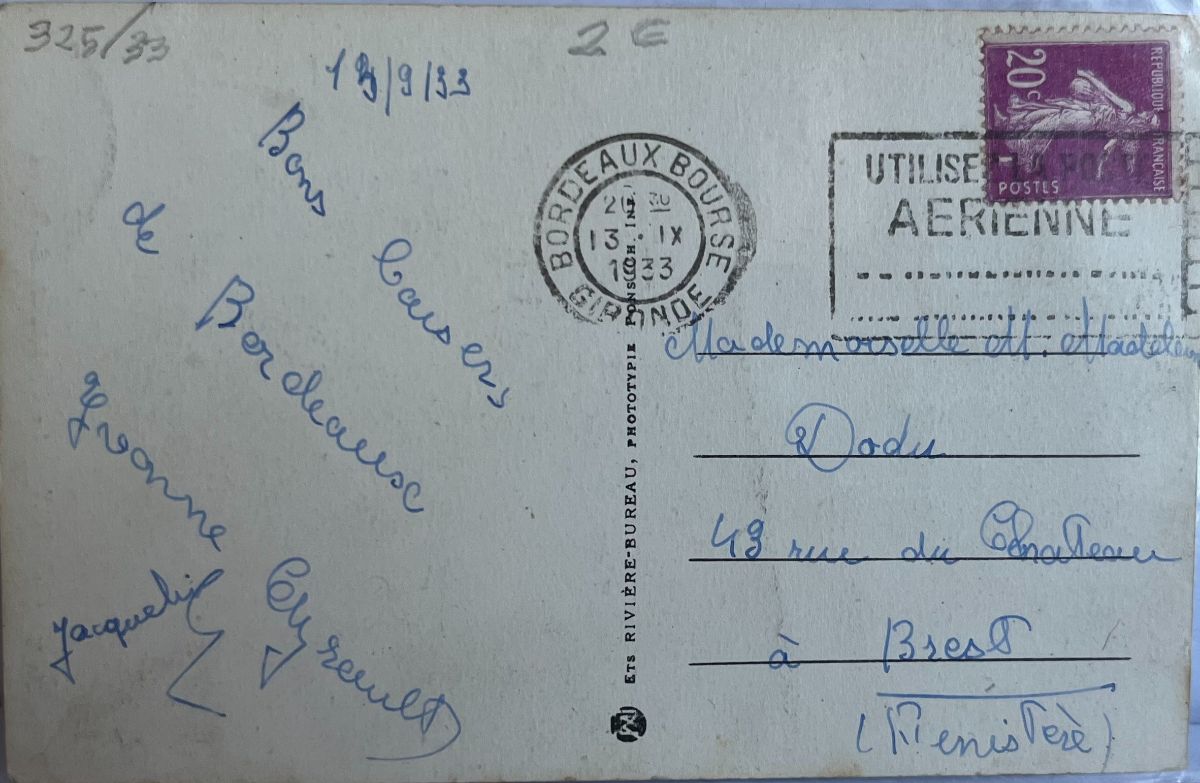 325/33
2 €
13/9/33
Bons baisers
de Bordeaux
Yvonne
Jacquelin
BORDEAUX BOURSE
13 · IX
1933
GIRONDE
REPUBLIQUE FRANÇAISE
20c
POSTES
UTILISEZ LA POSTE
AERIENNE
ETS RIVIÈRE-BUREAU, PHOTOTYPIE
Mademoiselle M. Madeleine
Dodu
43 rue du Chateau
à Brest
(Finistère)